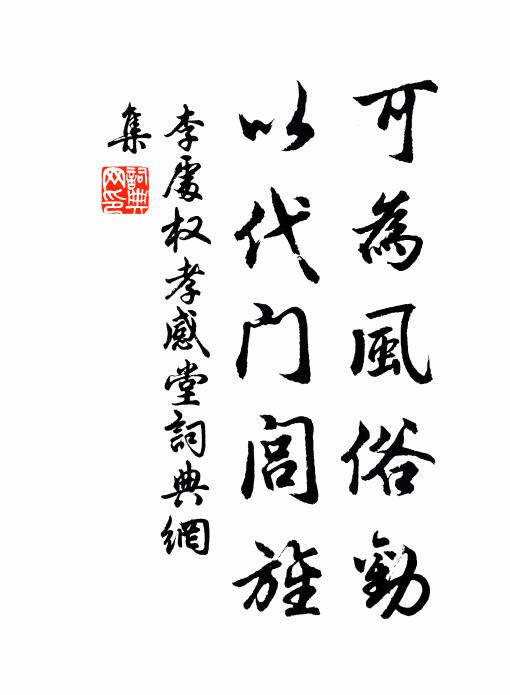 可為風俗勸
以代门閭旌
李處权孝感堂詞典網
集
詞典
网印